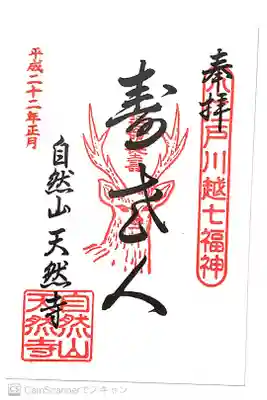 奉拝
小江戸川越七福神
寿老人
平成二十二年正月
自然山 天然寺
自然山
天然寺
CS CamScannerでスキャン